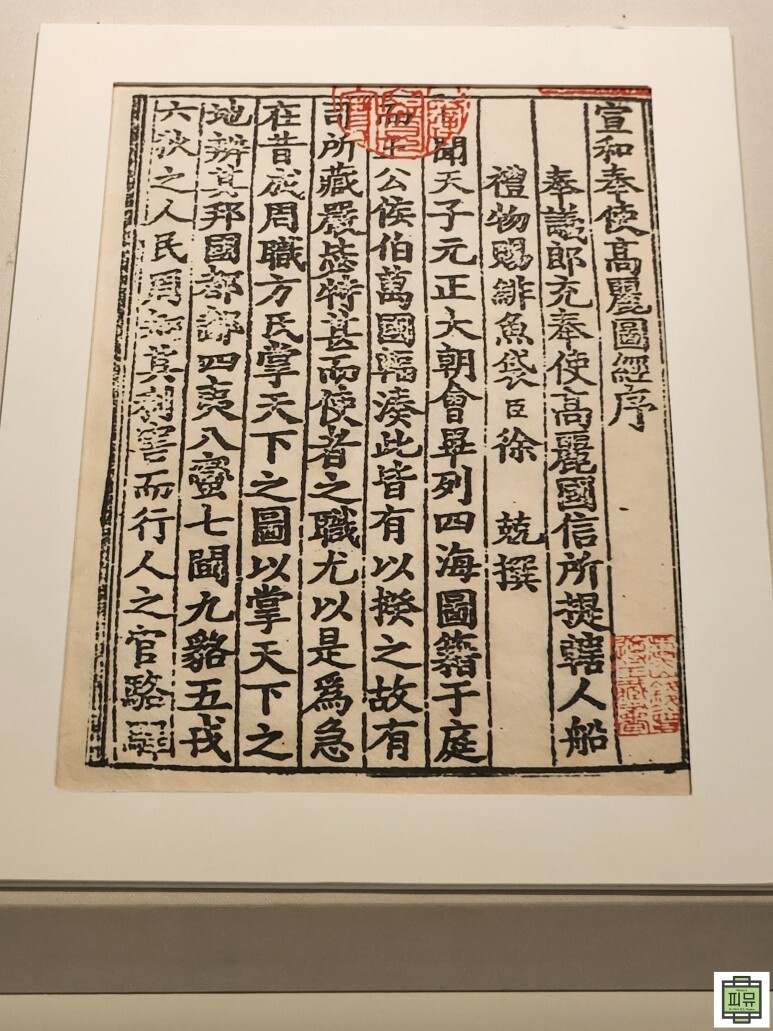 宣和奉使高麗圖經序
奉議郎充奉使高麗國信所提轄人船
禮物賜緋魚袋臣徐 兢撰
聞天子元正大朝會畢列四海圖籍于庭
而王公侯伯萬國輻湊此皆有以揆之故有
司所藏嚴毖特甚而使者之職尤以是為急
在昔成周職方氏掌天下之圖以掌天下之
地辨其邦國都鄙四夷八蠻七閩九貉五戎
六狄之人民周知其利害而行人之官駱驛
피뮤